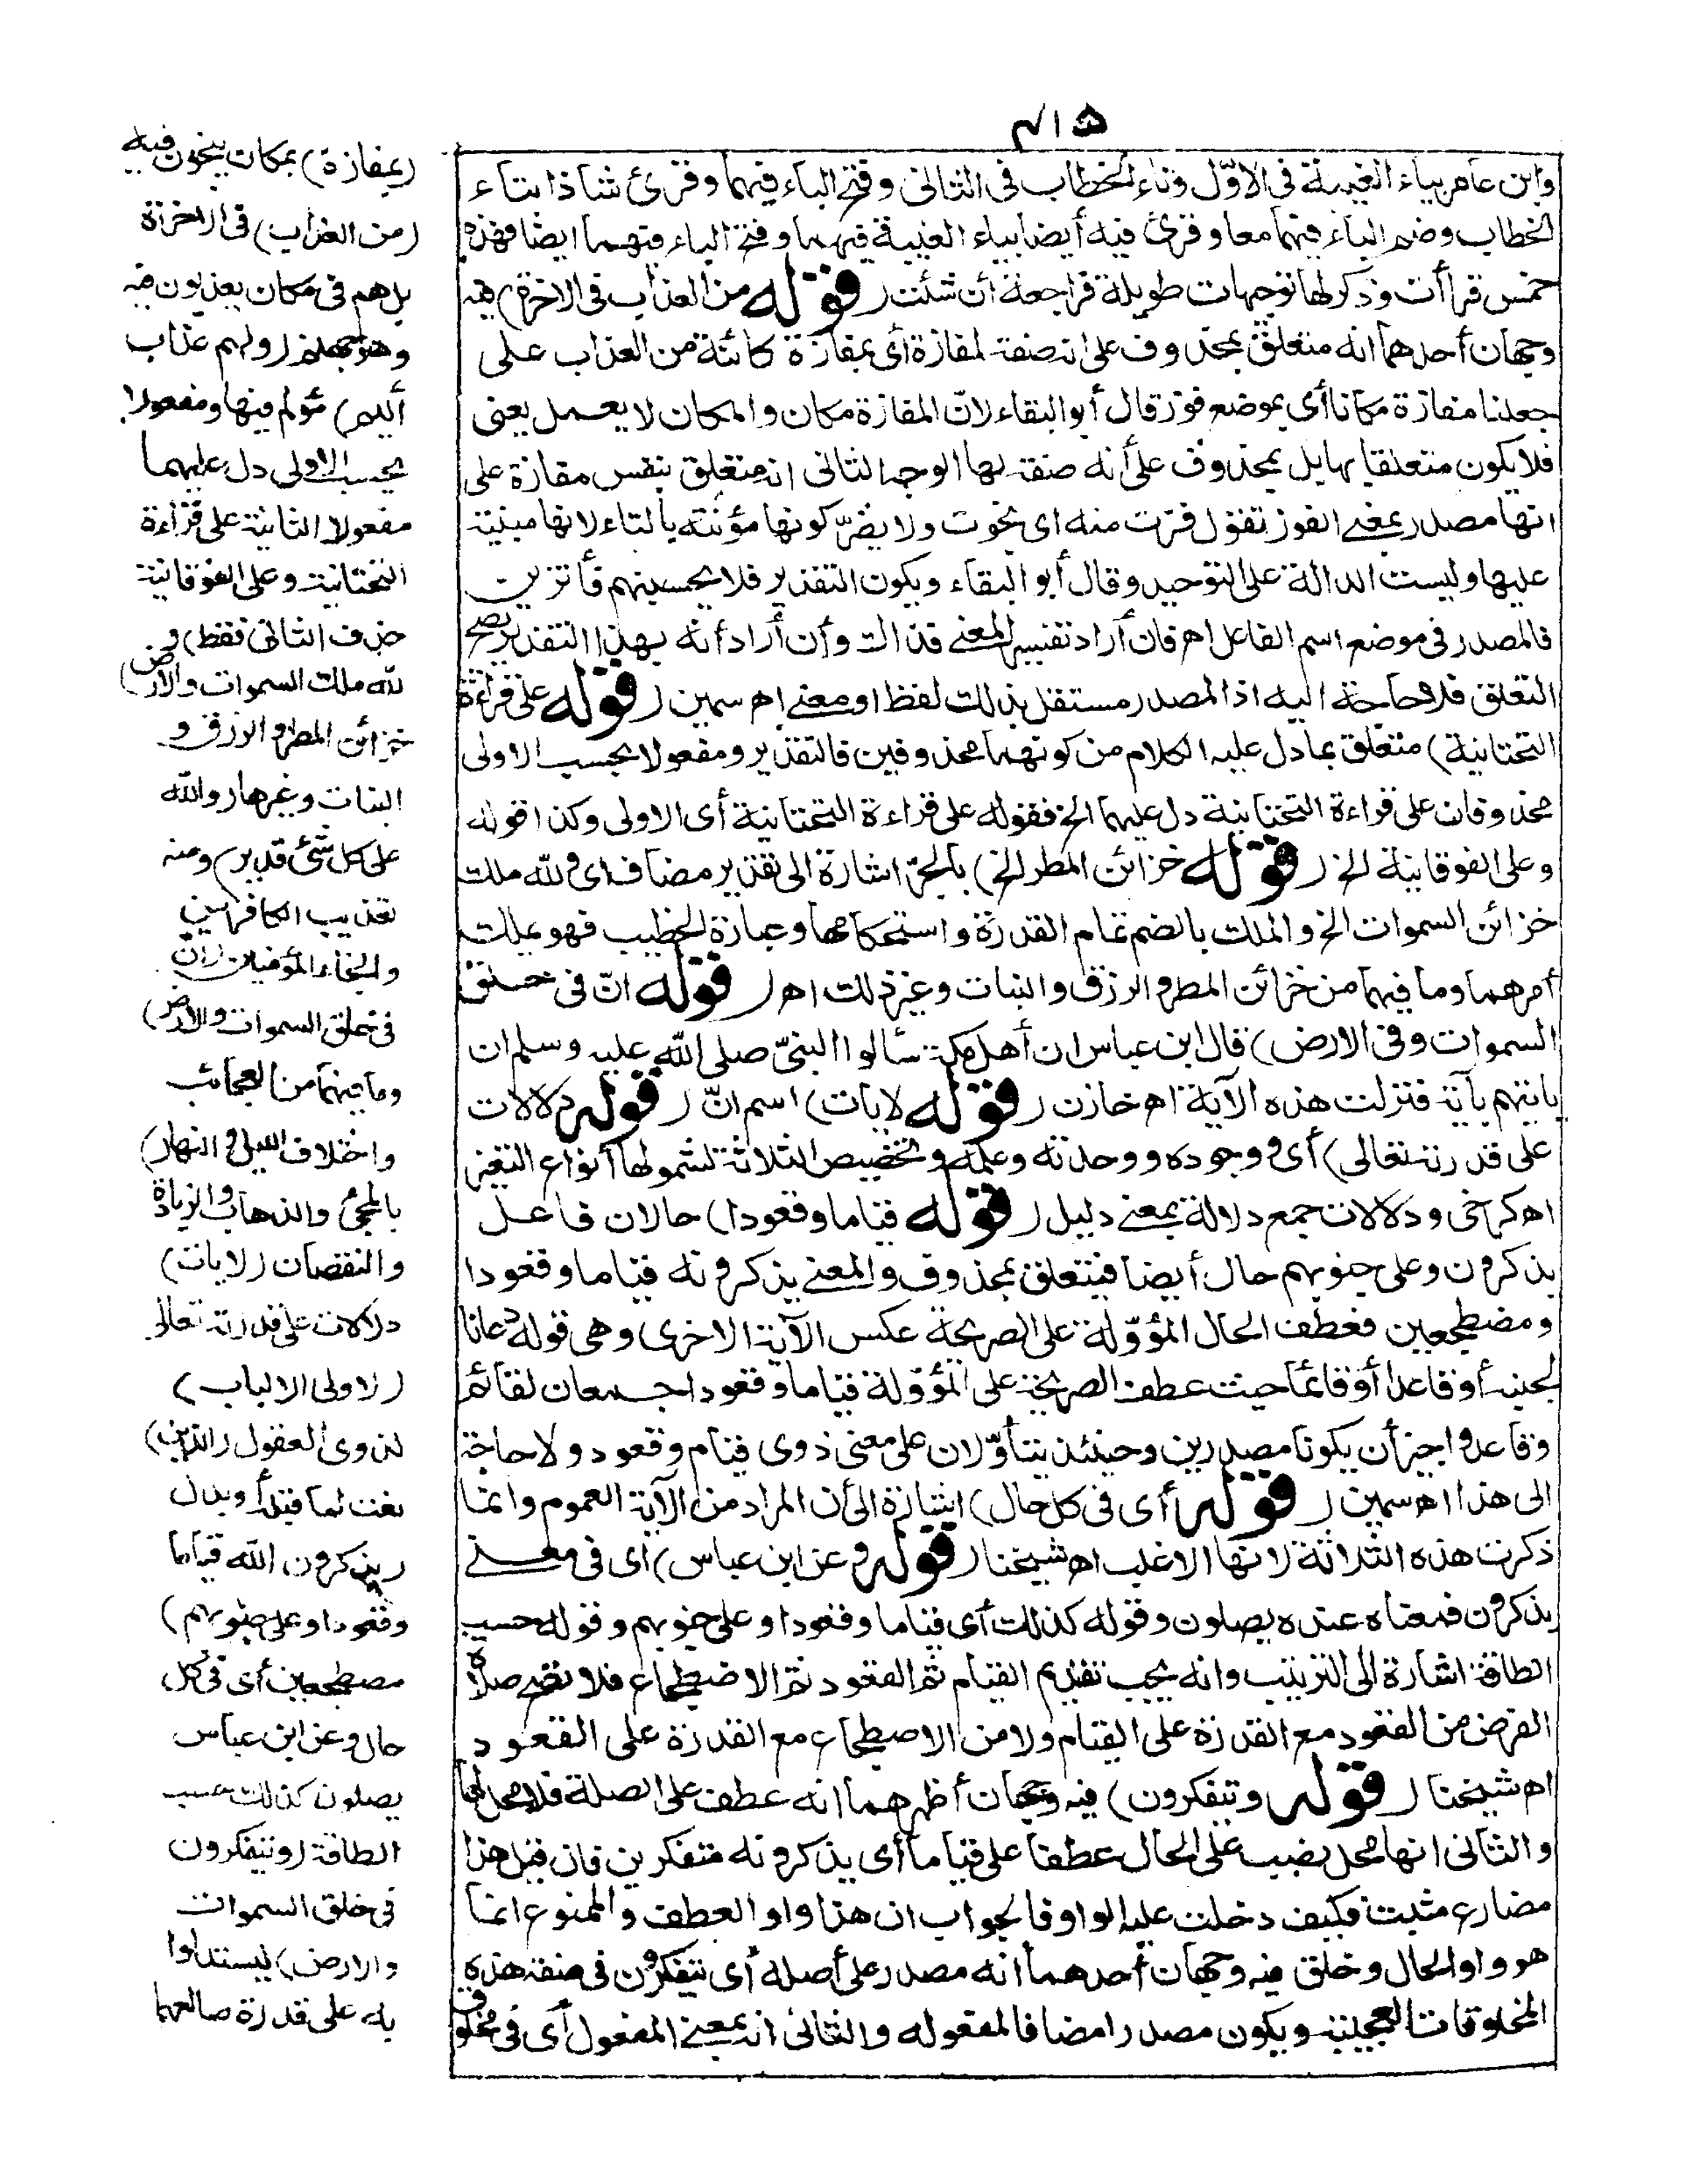 ٤١٥
وابن عامر بياء الغيبة فى الاوّل وتاء الخطاب فى الثانى وفتح الباء فيهما وقرئ شاذا بتاء
الخطاب وضم الباء فيهما معا وقرئ فيه أيضا بياء الغيبة فيهما وفتح الباء فيهما ايضا فهذه
خمس قراآت وذكر لها توجيهات طويلة فراجعه ان شئت (قوله من العذاب فى الاخرة) فيه
وجهان أحدهما انه متعلق بمحذوف على انه صفة لمفازة أى بمفازة كائنة من العذاب على
جعلنا مفازة مكانا أى بموضع فوز قال أبو البقاء لانّ المفازة مكان والمكان لا يعمل يعنى
فلا يكون متعلقا بها بل بمحذوف على أنه صفة لها الوجه الثانى انه متعلق بنفس مفازة على
انها مصدر بمعنى الفوز تقول فزت منه اى نجوت ولا يضرّ كونها مؤنثة بالتاء لانها مبنية
عليها وليست الدالة على التوحيد وقال أبو البقاء ويكون التقدير فلا تحسبنهم فائزين
فالمصدر فى موضع اسم الفاعل اه فان أراد تفسير المعنى فذاك وان أراد أنه بهذا التقدير يصح
التعلق فلا حاجة اليه اذ المصدر مستقل بذلك لفظا ومعنى اه سمين (قوله على قراءة
التحتانية) متعلق بما دل عليه الكلام من كونهما محذوفين فالتقدير ومفعولا يحسب الاولى
محذوفان على قراءة التحتانية دل عليهما الخ فقوله على قراءة التحتانية أى الاولى وكذا قوله
وعلى الفوقانية الخ (قوله خزائن المطر الخ) بالجرّ اشارة الى تقدير مضاف اى ولله ملك
خزائن السموات الخ والملك بالضم تمام القدرة واستحكامها وعبارة الخطيب فهو يملك
أمرهما وما فيهما من خزائن المطر والرزق والنبات وغير ذلك اه (قوله انّ فى خلق
السموات وفى الارض) قال ابن عباس ان أهل مكة سألوا النبىّ صلى الله عليه وسلم ان
يأتيهم بآية فنزلت هذه الآية اه خازن (قوله لايات) اسم انّ (قوله دلالات
على قدرته تعالى) أى ووجوده ووحدته وعلمه وتخصيص الثلاثة لشمولها أنواع التغير
اه كرخى ودلالات جمع دلالة بمعنى دليل (قوله قياما وقعودا) حالان فاعل
يذكرون وعلى جنوبهم حال أيضا فيتعلق بمحذوف والمعنى يذكرونه قياما وقعودا
ومضطجعين فعطف الحال المؤوّلة على الصريحة عكس الآية الاخرى وهى قوله دعانا
لجنبه أو قاعدا أو قائما حيث عطف الصريحة على المؤوّلة قياما وقعودا جمعان لقائم
وقاعد واجيز أن يكونا مصدرين وحينئذ يتأوّلان على معنى ذوى قيام وقعود ولا حاجة
الى هذا اه سمين (قوله أى فى كل حال) اشارة الى أن المراد من الآية العموم وانما
ذكرت هذه الثلاثة لانها الاغلب اه شيخنا (قوله وعن ابن عباس) اى فى معنى
يذكرون فمعناه عنده يصلون وقوله كذلك أى قياما وقعودا وعلى جنوبهم وقوله حسب
الطاقة اشارة الى الترتيب وانه يجب تقديم القيام ثم القعود ثم الاضطجاع فلا تصح صلاة
الفرض من القعود مع القدرة على القيام ولا من الاضطجاع مع القدرة على القعود
اه شيخنا (قوله ويتفكرون) فيه وجهان أظهرهما انه عطف على الصلة فلا محل لها
والثانى انها محل نصب على الحال عطفا على قياما أى يذكرونه متفكرين فان قيل هذا
مضارع مثبت فكيف دخلت عليه الواو فالجواب ان هذا واو العطف والممنوع انما
هو واو الحال وخلق فيه وجهان أحدهما انه مصدر على أصله أى يتفكرون فى صنعة هذه
المخلوقات العجيبة ويكون مصدرا مضافا لمفعوله والثانى انه بمعنى المفعول أى فى مخلوق
(بمفازة) بمكان ينجون فيه
(من العذاب) فى الاخرة
بل هم فى مكان يعذبون فيه
وهو جهنم (ولهم عذاب
أليم) مؤلم فيها ومفعولا
يحسب الاولى دل عليهما
مفعولا الثانية على قراءة
التحتانية وعلى الفوقانية
حذف الثانى فقط (و
لله ملك السموات والارض)
خزائن المطر والرزق و
النبات وغيرها (والله
على كل شئ قدير) ومنه
تعذيب الكافرين
وانجاء المؤمنين (ان
فى خلق السموات والارض)
وما فيهما من العجائب
(واختلاف الليل والنهار)
بالمجئ والذهاب والزيادة
والنقصان (لايات)
دلالات على قدرته تعالى
(لاولى الالباب)
لذوى العقول (الذين)
نعت لما قبله أو بدل
(يذكرون الله قياما
وقعودا وعلى جنوبهم)
مضطجعين أى فى كل
حال وعن ابن عباس
يصلون كذلك حسب
الطاقة (ويتفكرون
فى خلق السموات
والارض) ليستدلوا
به على قدرة صانعهما